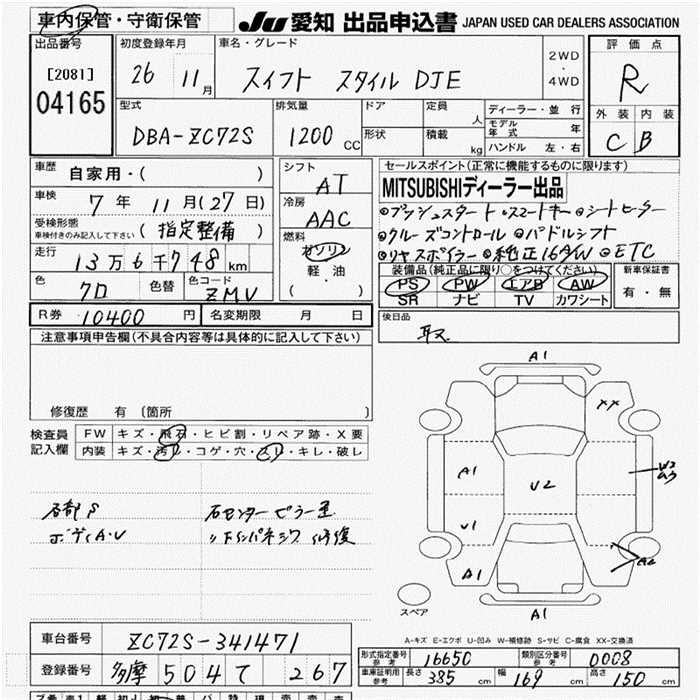 車内保管・守衛保管
JU 愛知 出品申込書 JAPAN USED CAR DEALERS ASSOCIATION
出品番号
[2081]
04165
初度登録年月
26 11月
車名・グレード
スイフト スタイル DJE
2WD
・
4WD
評価点
R
外装 内装
C B
型式
DBA-ZC72S
排気量
1200 CC
ドア
形状
定員 人
積載 kg
ディーラー・並行
モデル年式 年
ハンドル 左・右
車歴
自家用・( )
車検
7年 11月(27日)
受検形態
車検付きのみ記入して下さい
(指定整備)
走行
13万6千748km
色
クロ
色替
色コード
ZMV
シフト
AT
冷房
AAC
燃料
ガソリン
軽油
( )
セールスポイント(正常に機能するものに限ります)
MITSUBISHIディーラー出品
◎プッシュスタート ◎スマートキー ◎シートヒーター
◎クルーズコントロール ◎パドルシフト
◎リヤスポイラー ◎純正16AW ◎ETC
装備品(純正品に限り○をつけてください)
PS PW エアB AW
SR ナビ TV カワシート
新車保証書
有・無
R券 10400円
名変期限 月 日
後日品
取
注意事項申告欄(不具合内容等は具体的に記入して下さい)
修復歴 有 〔箇所 〕
検査員
記入欄
FW キズ・飛石・ヒビ割・リペア跡・X要
内装 キズ・汚レ・コゲ・穴・スレ・キレ・破レ
各部S 右センターピラー歪
ボディA・U 〃 修復
A1
XX
A1
U2
W2
U1
A1
A2
A1
スペア
A-キズ E-エクボ U-凹み W-補修跡 S-サビ C-腐食 XX-交換済
車台番号
ZC72S-341471
登録番号
多摩 504 て 267
形式指定番号
参考
16650
類別区分番号
参考
0008
車庫証明用
参考
長さ 385 cm
幅 169 cm
高さ 150 cm